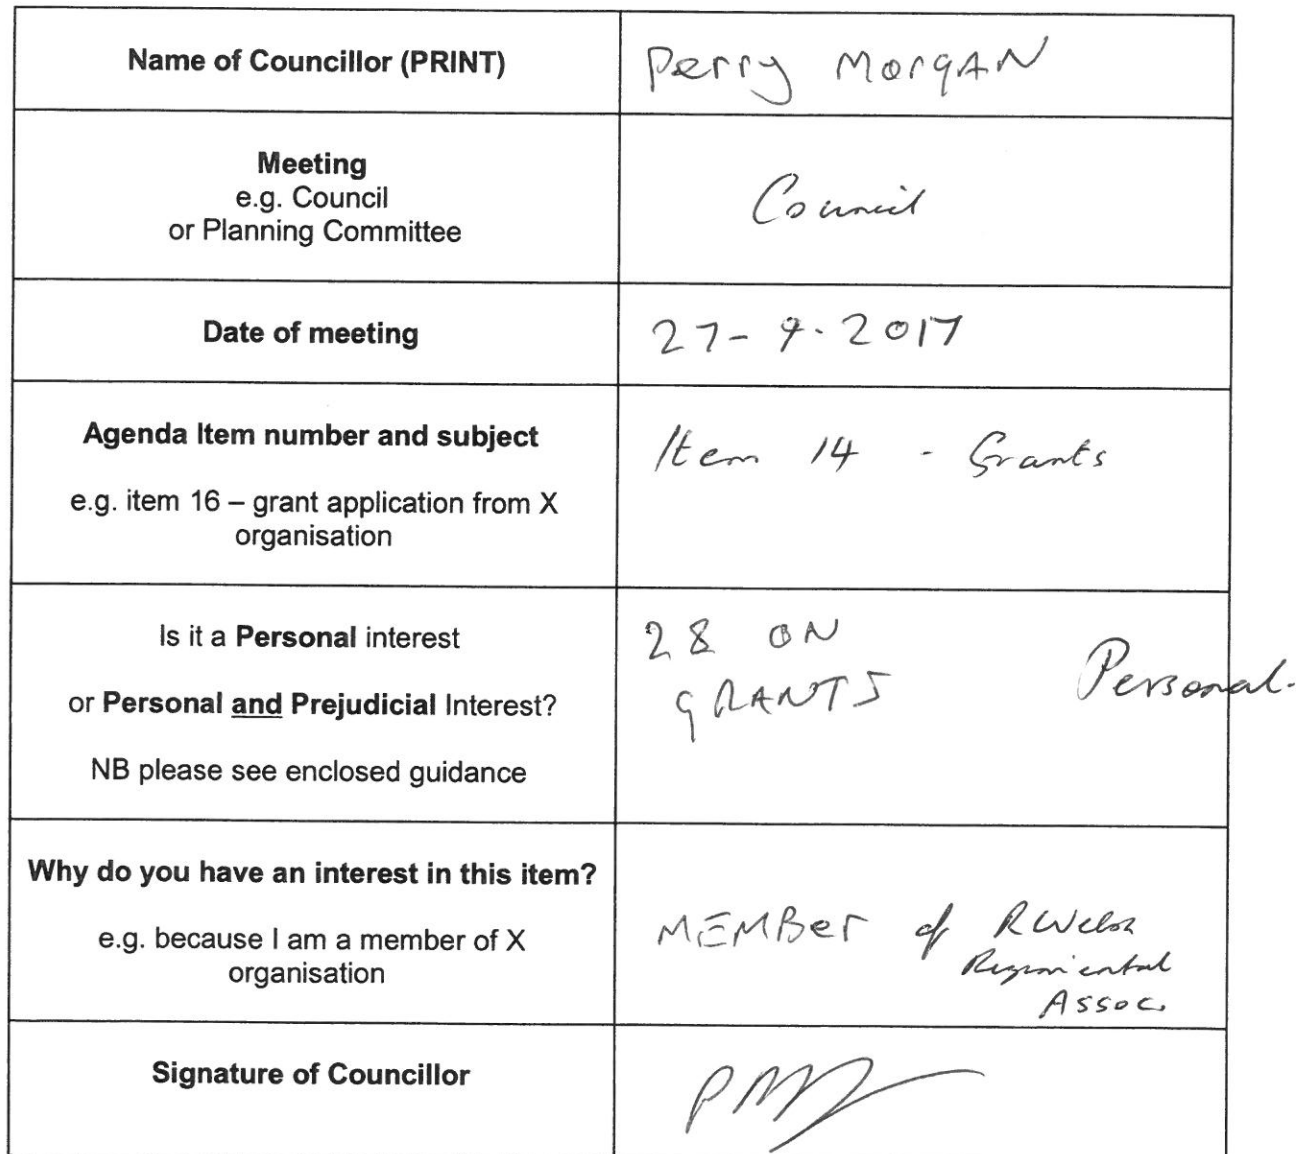 Name of Councillor (PRINT)
Perry MorgAN
Meeting
e.g. Council
or Planning Committee
Council
Date of meeting
27-9.2017
Agenda Item number and subject
e.g. item 16 – grant application from X
organisation
Item 14 - Grants
Is it a Personal interest
or Personal and Prejudicial Interest?
NB please see enclosed guidance
28 ON
GRANTS
Personal.
Why do you have an interest in this item?
e.g. because I am a member of X
organisation
MEMBer of RWelsh
Regimental
Assoc.
Signature of Councillor